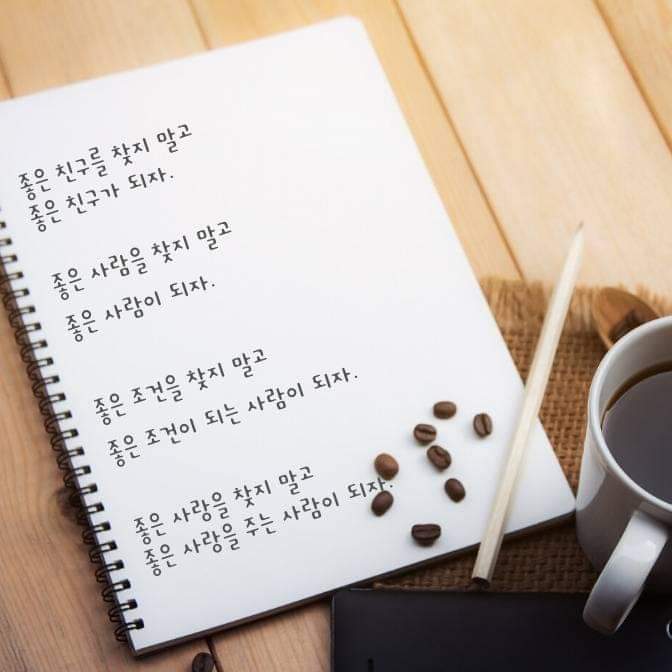 좋은 친구를 찾지 말고
좋은 친구가 되자.
좋은 사람을 찾지 말고
좋은 사람이 되자.
좋은 조건을 찾지 말고
좋은 조건이 되는 사람이 되자.
좋은 사랑을 찾지 말고
좋은 사랑을 주는 사람이 되자.